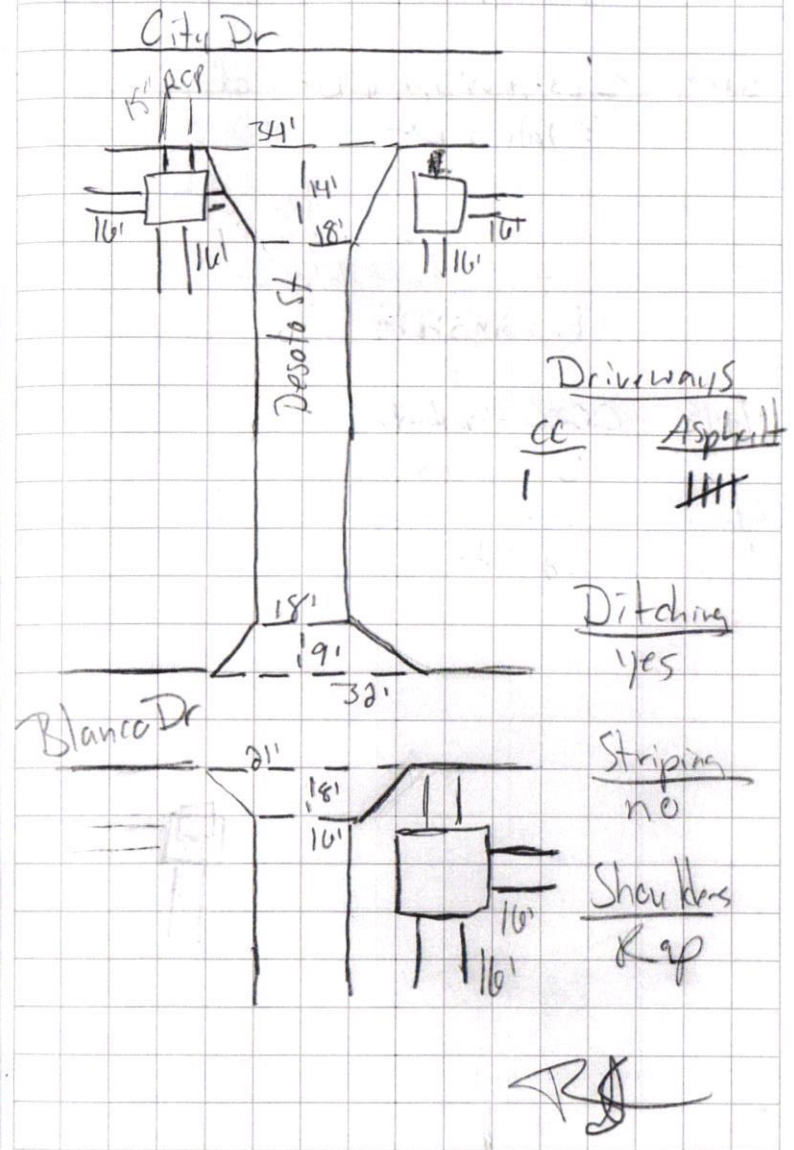 City Dr
15' RCP
34'
14'
16'
16'
18'
16'
16'
Desoto St
Driveways
CC Asphalt
| ||||
18'
9'
32'
Ditching
yes
Blanco Dr
21'
18'
16'
Striping
no
16'
16'
Shoulders
Rap